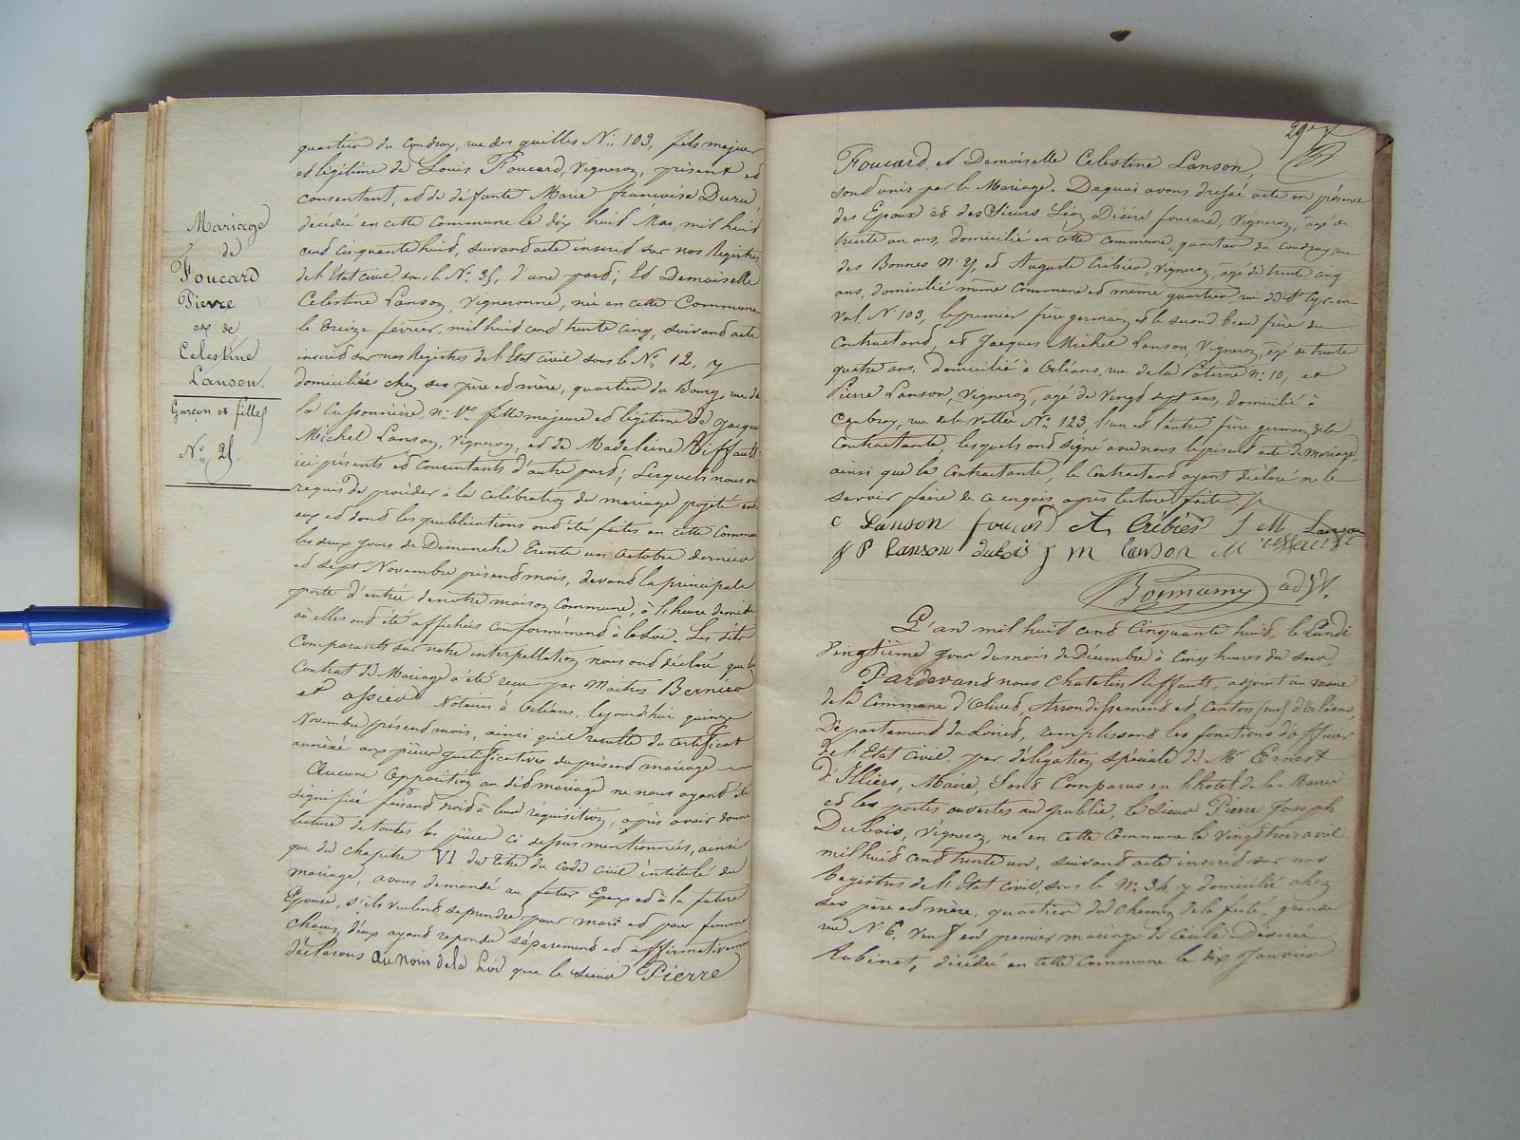 Mariage
de
Foucard
Pierre
et de
Celestine
Lanson.
Garçon et fille
N° 25.
quartier du Coudray, rue des quilles N° 103, fils majeur
et légitime de Louis Foucard, Vigneron, présent et
consentant, et de défunte Marie françoise Duru,
décédée en cette Commune le dix huit Mai, mil huit
cent cinquante huit, suivant acte inscrit sur nos Registres
de l'Etat civil sous le N° 35, d'une part; Et Demoiselle
Celestine Lanson, Vigneronne, née en cette Commune
le treize février, mil huit cent trente cinq, suivant acte
inscrit sur nos Registres de l'Etat civil sous le N° 12, y
domiciliée chez ses père et mère, quartier du Bourg, rue de
la Cussonnière n° fille majeure et légitime de Jacques
Michel Lanson, Vigneron, et de Madeleine Riffault
ici présents et consentants d'autre part; Lesquels nous ont
requis de procéder à la célébration du mariage projeté entre
eux et dont les publications ont été faites en cette Commune
les deux jours de Dimanche trente un Octobre dernier
et sept Novembre présent mois, devant la principale
porte d'entrée de notre maison Commune, à l'heure de midi
où elles ont été affichées conformément à la loi. Les dits
Comparants sur notre interpellation nous ont déclaré que le
Contrat de Mariage a été reçu par Maitres Bernier
et assier Notaires à Orléans, le jourd'hui quinze
Novembre présent mois, ainsi qu'il resulte du certificat
annéxé aux pièces justificatives du présent mariage
Aucune Opposition au dit mariage ne nous ayant été
signifiée faisant droit à leur réquisition, après avoir donné
lecture de toutes les pièces ci dessus mentionnées, ainsi
que du chapitre VI du titre du code civil intitulé du
mariage, avons demandé au futur Epoux et à la future
Epouse, s'ils veulent se prendre pour mari et pour femme
chacun d'eux ayant repondu séparément et affirmativement
déclarons au nom de la Loi que le sieur Pierre
29
Foucard, et Demoiselle Celestine Lanson,
sont unis par le Mariage. De quoi avons dressé acte en présence
des Epoux et des Sieurs Léon Désiré foucard, Vigneron, âgé de
trente un ans, domicilié en cette commune, quartier du coudray rue
des Bonnes N° 25, et Auguste Cribier, Vigneron, âgé de trente cinq
ans, domicilié même Commune et même quartier rue de St Cyr en
Val. N° 103, le premier frère germain et le second beau frère du
Contractant, et Jacques Michel Lanson, Vigneron, âgé de trente
quatre ans, domicilié à Orléans, rue de la Poterne n° 10, et
Pierre Lanson, Vigneron, âgé de Vingt sept ans, domicilié à
Combreux, rue de la Vallée N° 123, l'un et l'autre frère germain de la
Contractante, lesquels ont signé avec nous le présent acte de mariage,
ainsi que la Contractante, le Contractant ayant déclaré ne le
savoir faire de ce enquis après lecture faite
c Lanson foucard A Cribier J M Lanson
P Lanson dubois J M Lanson
Bonnamy adjt.
L'an mil huit cent cinquante huit, le Lundi
vingtième jour du mois de Décembre à cinq heures du soir,
Pardevant nous Chatelin Riffault, adjoint au maire
de la Commune d'Olivet, Arrondissement et Canton sud d'Orléans,
Département du Loiret, remplissant les fonctions d'officier
de l'Etat Civil par délégation spéciale de Mr Ernest
d'Illiers, Maire, Sont Comparus en l'hôtel de la Mairie
et les portes ouvertes au public, le Sieur Pierre Joseph
Dubois, Vigneron, né en cette Commune le vingt trois avril
mil huit cent trente un, suivant acte inscrit sur nos
Registres de l'Etat Civil, sous le N° 34 y domicilié chez
ses père et mère, quartier du Chemin de la ferté, grande
rue N° 6, Veuf en premier mariage de Cécile Désirée
Rabinet, décédée en cette Commune le dix Janvier